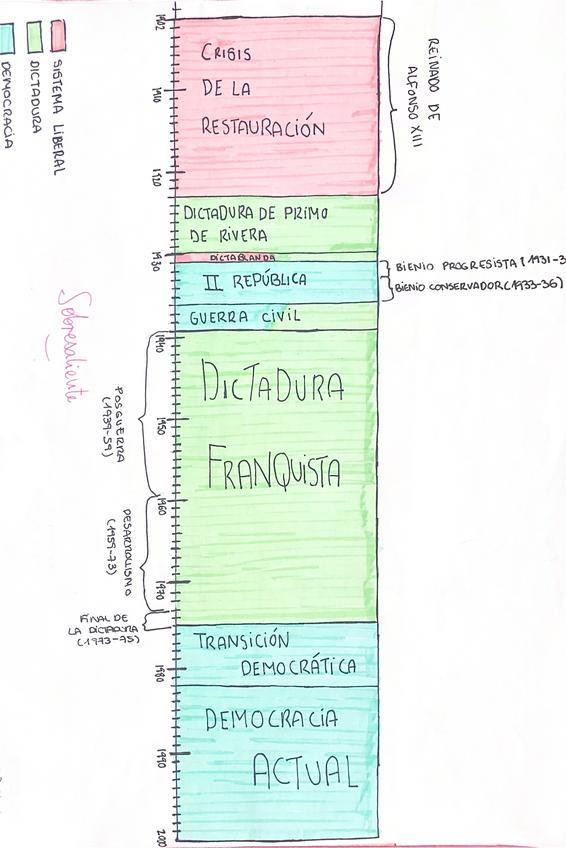 SISTEMA LIBERAL
DICTADURA
DEMOCRACIA
1902
1910
1920
1930
1940
1950
1960
1970
1980
1990
2000
CRISIS
DE LA
RESTAURACIÓN
REINADO DE
ALFONSO XIII
DICTADURA DE PRIMO
DE RIVERA
DICTABLANDA
II REPÚBLICA
BIENIO PROGRESISTA (1931-3
BIENIO CONSERVADOR (1933-36)
GUERRA CIVIL
Sobresaliente
DICTADURA
FRANQUISTA
POSGUERRA
(1939-59)
DESARROLLISMO
(1959-73)
FINAL DE
LA DICTADURA
(1973-75)
TRANSICIÓN
DEMOCRÁTICA
DEMOCRACIA
ACTUAL